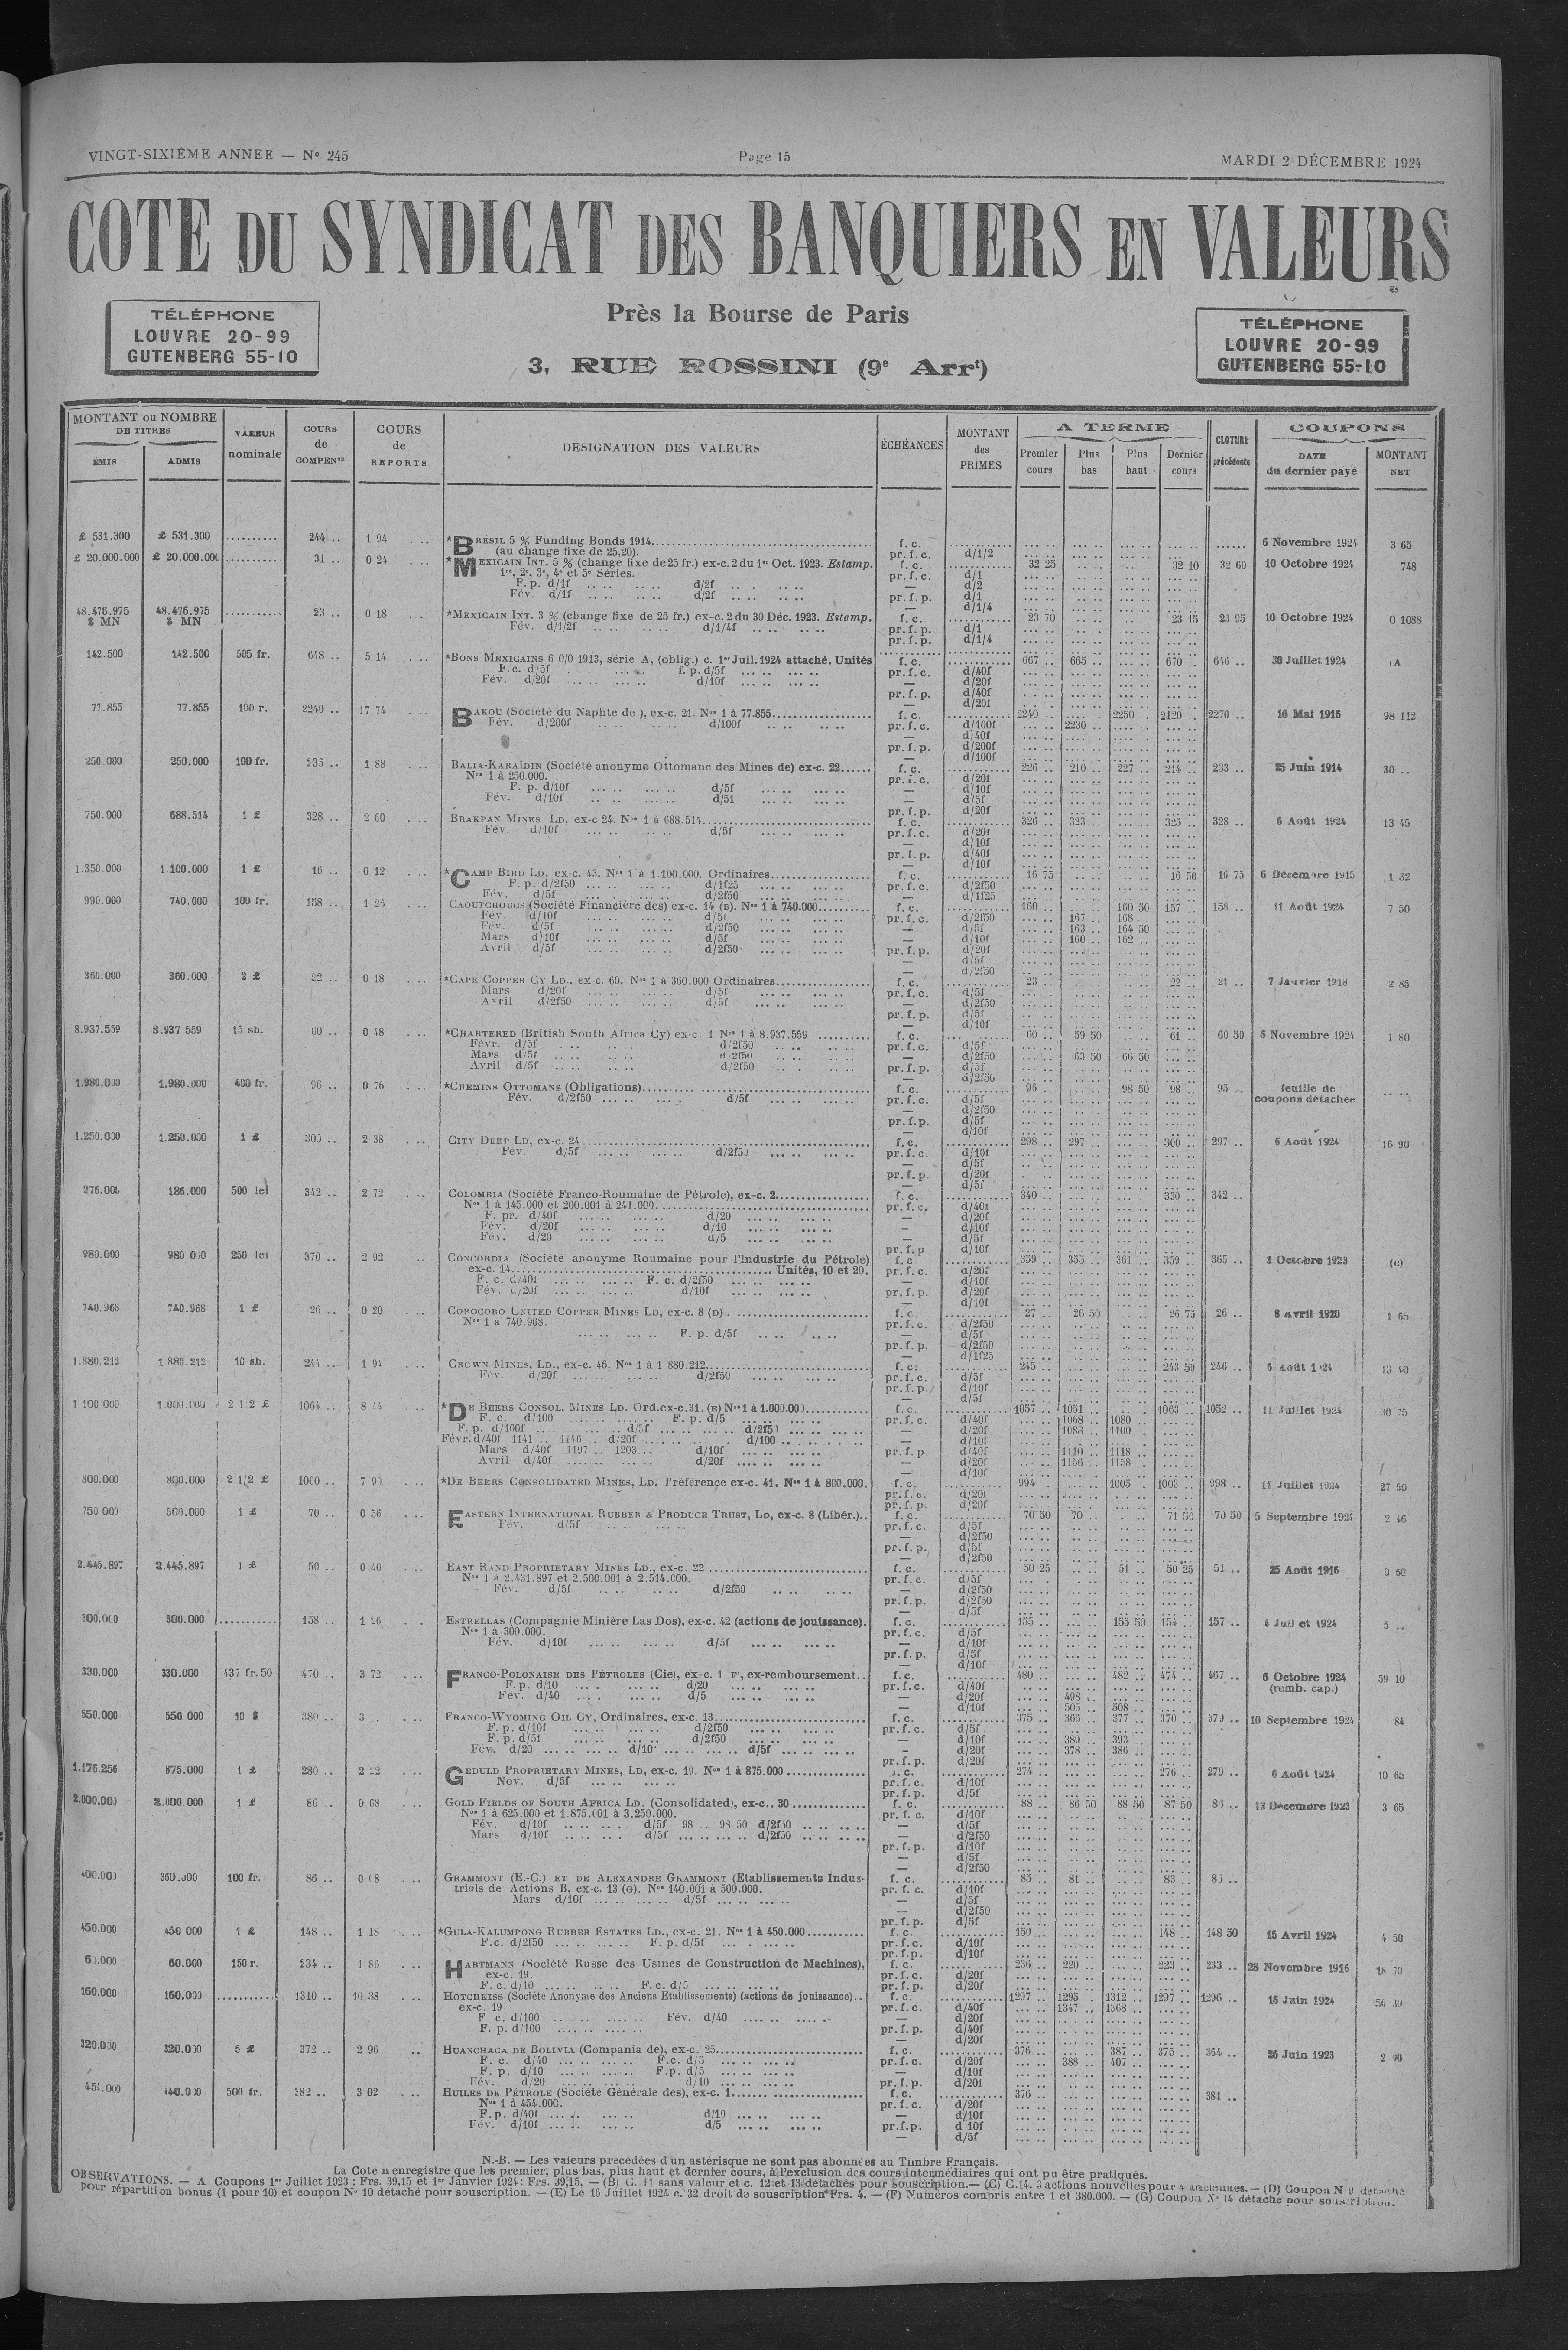 VINGT-SIXIÈME ANNEE — N° 245 Page 15 MARDI 2 DÉCEMBRE 1924
COTE DU SYNDICAT DES BANQUIERS EN VALEURS
Près la Bourse de Paris
3, RUE ROSSINI (9e Arrt)
TÉLÉPHONE
LOUVRE 20-99
GUTENBERG 55-10
TÉLÉPHONE
LOUVRE 20-99
GUTENBERG 55-10
MONTANT ou NOMBRE DE TITRES
ÉMIS ADMIS
VALEUR nominale
COURS de COMPENon
COURS de REPORTS
DÉSIGNATION DES VALEURS
ÉCHÉANCES
MONTANT des PRIMES
A TERME
Premier cours Plus bas Plus haut Dernier cours
CLOTURE précédente
COUPONS
DATE du dernier payé
MONTANT NET
£ 531.300 £ 531.300 .......... 244 .. 1 94 *BRÉSIL 5 % Funding Bonds 1914 f. c. 6 Novembre 1924 3 65
(au change fixe de 25,20). pr. f. c. d/1/2
£ 20.000.000 £ 20.000.000 .......... 31 .. 0 24 *MEXICAIN INT. 5 % (change fixe de 25 fr.) ex-c. 2 du 1er Oct. 1923. Estamp. f. c. 32 25 32 10 32 60 10 Octobre 1924 748
1re, 2e, 3e, 4e et 5e Séries. pr. f. c. d/1
F. p. d/1f d/2f — d/2
Fév. d/1f d/2f pr. f. p. d/1
— d/1/4
48.476.975 $ MN 48.476.975 $ MN .......... 23 .. 0 18 *MEXICAIN INT. 3 % (change fixe de 25 fr.) ex-c. 2 du 30 Déc. 1923. Estamp. f. c. 23 70 23 15 23 95 10 Octobre 1924 0 1088
Fév. d/1/2f d/1/4f pr. f. p. d/1
pr. f. p. d/1/4
142.500 142.500 505 fr. 648 .. 5 14 *BONS MEXICAINS 6 0/0 1913, série A, (oblig.) c. 1er Juil. 1924 attaché. Unités f. c. 667 .. 665 .. 670 .. 646 .. 30 Juillet 1924 (A
F. c. d/5f f. p. d/5f pr. f. c. d/40f
Fév. d/20f d/10f — d/20f
pr. f. p. d/40f
— d/20f
77.855 77.855 100 r. 2240 .. 17 74 BAKOU (Société du Naphte de ), ex-c. 21. Nos 1 à 77.855 f. c. 2240 2250 2120 .. 2270 .. 16 Mai 1916 98 112
Fév. d/200f d/100f pr. f. c. d/100f 2230
— d/40f
pr. f. p. d/200f
— d/100f
250.000 250.000 100 fr. 235 .. 1 88 BALIA-KARAÏDIN (Société anonyme Ottomane des Mines de) ex-c. 22 f. c. 226 .. 210 .. 227 .. 214 .. 233 .. 25 Juin 1914 30 ..
Nos 1 à 250.000. pr. f. c. d/20f
F. p. d/10f d/5f — d/10f
Fév. d/10f d/5f — d/5f
pr. f. p. d/20f
750.000 688.514 1 £ 328 .. 2 60 BRAKPAN MINES LD, ex-c 24. Nos 1 à 688.514 f. c. 326 .. 323 .. 325 .. 328 .. 6 Août 1924 13 45
Fév. d/10f d/5f pr. f. c. d/20f
— d/10f
pr. f. p. d/40f
— d/10f
1.350.000 1.100.000 1 £ 16 .. 0 12 *CAMP BIRD LD, ex-c. 43. Nos 1 à 1.100.000. Ordinaires f. c. 16 75 16 50 16 75 6 Décembre 1915 1 32
F. p. d/2f50 d/1f25 pr. f. c. d/2f50
Fév. d/5f d/2f50 — d/1f25
990.000 740.000 100 fr. 158 .. 1 26 CAOUTCHOUCS (Société Financière des) ex-c. 14 (B). Nos 1 à 740.000 f. c. 160 .. 160 50 157 .. 158 .. 11 Août 1924 7 50
Fév. d/10f d/5f pr. f. c. d/2f50 167 .. 168
Fév. d/5f d/2f50 — d/5f 163 .. 164 50
Mars d/10f d/5f — d/10f 160 .. 162 ..
Avril d/5f d/2f50 pr. f. p. d/20f
— d/5f
— d/2f50
360.000 360.000 2 £ 22 .. 0 18 *CAPE COPPER CY LD., ex-c. 60. Nos 1 à 360.000 Ordinaires f. c. 23 .. 22 .. 21 .. 7 Janvier 1918 2 85
Mars d/20f d/5f pr. f. c. d/5f
Avril d/2f50 d/5f — d/2f50
pr. f. p. d/5f
— d/10f
8.937.559 8.937 559 15 sh. 60 .. 0 48 *CHARTERED (British South Africa Cy) ex-c. 1 Nos 1 à 8.937.559 f. c. 60 .. 59 50 61 .. 60 50 6 Novembre 1924 1 80
Févr. d/5f d/2f50 pr. f. c. d/5f
Mars d/5f d/2f50 — d/2f50 63 50 66 50
Avril d/5f d/2f50 pr. f. p. d/5f
— d/2f50
1.980.000 1.980.000 450 fr. 96 .. 0 76 *CHEMINS OTTOMANS (Obligations) f. c. 96 .. 98 50 98 .. 95 .. feuille de
Fév. d/2f50 d/5f pr. f. c. d/5f coupons détachée
— d/2f50
pr. f. p. d/5f
— d/10f
1.250.000 1.250.000 1 £ 300 .. 2 38 CITY DEEP LD, ex-c. 24 f. c. 298 .. 297 .. 300 .. 297 .. 6 Août 1924 16 90
Fév. d/5f d/2f50 pr. f. c. d/10f
— d/5f
pr. f. p. d/20f
— d/5f
276.000 186.000 500 lei 342 .. 2 72 COLOMBIA (Société Franco-Roumaine de Pétrole), ex-c. 2 f. c. 340 .. 330 .. 342 ..
Nos 1 à 145.000 et 200.001 à 241.000. pr. f. c. d/40f
F. pr. d/40f d/20 — d/20f
Fév. d/20f d/10 — d/10f
Fév. d/20 d/5 — d/5f
pr. f. p d/10f
980.000 980 000 250 lei 370 .. 2 92 CONCORDIA (Société anonyme Roumaine pour l'Industrie du Pétrole) f. c 359 .. 355 .. 361 .. 359 .. 365 .. 2 Octobre 1923 (C)
ex-c. 14 Unités, 10 et 20. pr. f. c. d/20f
F. c. d/40f F. c. d/2f50 — d/10f
Fév. d/20f d/10f pr. f. p. d/20f
— d/10f
740.968 740.968 1 £ 26 .. 0 20 COROCORO UNITED COPPER MINES LD, ex-c. 8 (D) f. c. 27 .. 26 50 26 75 26 .. 8 avril 1920 1 65
Nos 1 à 740.968. pr. f. c. d/2f50
F. p. d/5f — d/5f
pr. f. p. d/2f50
— d/1f25
1.880.212 1 880.212 10 sh. 244 .. 1 94 CROWN MINES, LD., ex-c. 46. Nos 1 à 1 880.212 f. c. 245 .. 243 50 246 .. 6 Août 1924 13 40
Fév. d/20f d/2f50 pr. f. c. d/5f
pr. f. p. d/10f
— d/5f
1.100 000 1.000.000 2 1 2 £ 1064 .. 8 44 *DE BEERS CONSOL. MINES LD. Ord. ex-c. 31. (E) Nos 1 à 1.000.000 f. c. 1057 .. 1051 .. 1063 .. 1052 .. 11 Juillet 1924
F. c. d/100 F. p. d/5 pr. f. c. d/40f 1068 .. 1080
F. p. d/100f d/5f d/2f50 — d/20f 1083 .. 1100
Févr. d/40f 1141 .. 1146 .. d/20f d/100 — d/10f
Mars d/40f 1197 .. 1203 .. d/10f pr. f. p d/40f 1110 .. 1118 ..
Avril d/40f d/20f — d/20f 1156 .. 1158 ..
— d/10f
800.000 800.000 2 1/2 £ 1000 .. 7 90 *DE BEERS CONSOLIDATED MINES, LD. Préférence ex-c. 41. Nos 1 à 800.000. f. c. 994 1005 1003 .. 998 .. 11 Juillet 1924 27 50
pr. f. c. d/20f
pr. f. p. d/20f
750 000 500.000 1 £ 70 .. 0 56 EASTERN INTERNATIONAL RUBBER & PRODUCE TRUST, LD, ex-c. 8 (Libér.) f. c. 70 50 70 .. 71 50 70 50 5 Septembre 1924 2 46
Fév. d/5f pr. f. c. d/5f
— d/2f50
pr. f. p. d/5f
— d/2f50
2.445.897 2.445.897 1 £ 50 .. 0 40 EAST RAND PROPRIETARY MINES LD., ex-c. 22 f. c. 50 25 51 .. 50 25 51 .. 25 Août 1916 0 60
Nos 1 à 2.431.897 et 2.500.001 à 2.514.000. pr. f. c. d/5f
Fév. d/5f d/2f50 — d/2f50
pr. f. p. d/2f50
— d/5f
300.000 300.000 .......... 158 .. 1 26 ESTRELLAS (Compagnie Minière Las Dos), ex-c. 42 (actions de jouissance). f. c. 155 .. 155 50 154 .. 157 .. 4 Juillet 1924 5 ..
Nos 1 à 300.000. pr. f. c. d/5f
Fév. d/10f d/5f — d/10f
pr. f. p. d/5f
— d/10f
330.000 330.000 437 fr. 50 470 .. 3 72 FRANCO-POLONAISE DES PÉTROLES (Cie), ex-c. 1 F, ex-remboursement f. c. 480 .. 482 .. 474 .. 467 .. 6 Octobre 1924 59 10
F. p. d/10 d/20 pr. f. c. d/40f (remb. cap.)
Fév. d/40 d/5 — d/20f 498 ..
— d/10f 505 .. 508 ..
550.000 550 000 10 $ 380 .. 3 FRANCO-WYOMING OIL CY, Ordinaires, ex-c. 13 f. c. 375 .. 366 .. 377 .. 370 .. 379 .. 10 Septembre 1924 84
F. p. d/10f d/2f50 pr. f. c. d/5f
F. p. d/5f d/2f50 — d/10f 380 .. 393
Fév. d/20 d/10 d/5f — d/20f 378 .. 386 ..
pr. f. p. d/20f
1.176.256 875.000 1 £ 280 .. 2 22 GEDULD PROPRIETARY MINES, LD, ex-c. 19. Nos 1 à 875.000 f. c. 274 .. 276 .. 279 .. 6 Août 1924 10 65
Nov. d/5f pr. f. c. d/10f
pr. f. p. d/5f
2.000.000 2.000.000 1 £ 86 .. 0 68 GOLD FIELDS OF SOUTH AFRICA LD. (Consolidated), ex-c. 30 f. c. 88 .. 86 50 88 50 87 50 13 Décembre 1923 3 65
Nos 1 à 625.000 et 1.875.001 à 3.250.000. pr. f. c. d/10f
Fév. d/10f d/5f 98 .. 98 50 d/2f50 — d/5f
Mars d/10f d/5f d/2f50 — d/2f50
pr. f. p. d/10f
— d/5f
— d/2f50
400.000 360.000 100 fr. 86 .. 0 68 GRAMMONT (E.-C.) ET DE ALEXANDRE GRAMMONT (Etablissements Indus- f. c. 85 .. 81 .. 83 .. 85 ..
triels de Actions B, ex-c. 13 (G). Nos 140.001 à 500.000. pr. f. c. d/10f
Mars d/10f d/5f — d/5f
— d/2f50
pr. f. p. d/5f
450.000 450 000 1 £ 148 .. 1 18 *GULA-KALUMPONG RUBBER ESTATES LD., ex-c. 21. Nos 1 à 450.000 f. c. 150 .. 148 .. 148 50 15 Avril 1924 4 50
F.c. d/2f50 F. p. d/5f pr. f. c. d/10f
pr. f. p. d/10f
60.000 60.000 150 r. 234 .. 1 86 HARTMANN (Société Russe des Usines de Construction de Machines), f. c. 236 .. 220 .. 223 .. 233 .. 28 Novembre 1916 18 70
ex-c. 19. pr. f. c. d/20f
F. c. d/10 F. c. d/5 pr. f. p. d/20f
160.000 160.000 .......... 1310 .. 10 38 HOTCHKISS (Société Anonyme des Anciens Etablissements) (actions de jouissance) f. c. 1297 .. 1295 1312 .. 1297 .. 1296 .. 16 Juin 1924
ex-c. 19 pr. f. c. d/40f 1347 .. 1368 ..
F c. d/100 Fév. d/40 — d/20f
F. p. d/100 pr. f. p. d/40f
— d/20f
320.000 320.000 5 £ 372 .. 2 96 HUANCHACA DE BOLIVIA (Compania de), ex-c. 25 f. c. 376 387 .. 375 .. 364 .. 26 Juin 1923
F. c. d/40 F.c. d/5 pr. f. c. d/20f 388 .. 407 ..
F. p. d/10 F.p. d/5 — d/10f
Fév. d/20 d/10 pr. f. p. d/20f
454.000 440.000 500 fr. 382 .. 3 02 HUILES DE PÉTROLE (Société Générale des), ex-c. 1 f. c. 376 381 ..
Nos 1 à 454.000. pr. f. c. d/20f
F. p. d/40f d/10 — d/10f
Fév. d/10f d/5 pr. f. p. d 10f
— d/5f
N.-B. — Les valeurs précédées d'un astérisque ne sont pas abonnées au Timbre Français.
La Cote n'enregistre que les premier, plus bas, plus haut et dernier cours, à l'exclusion des cours intermédiaires qui ont pu être pratiqués.
OBSERVATIONS. — A Coupons 1er Juillet 1923 : Frs. 39,15 et 1er Janvier 1924 : Frs. 39,15, — (B) C. 11 sans valeur et c. 12 et 13 détachés pour souscription. — (C) C. 14. 3 actions nouvelles pour 4 anciennes. — (D) Coupon N° 9 détaché
pour répartition bonus (1 pour 10) et coupon N° 10 détaché pour souscription. — (E) Le 16 Juillet 1924 c. 32 droit de souscription Frs. 4. — (F) Numéros compris entre 1 et 380.000. — (G) Coupon N° 14 détaché pour souscription.